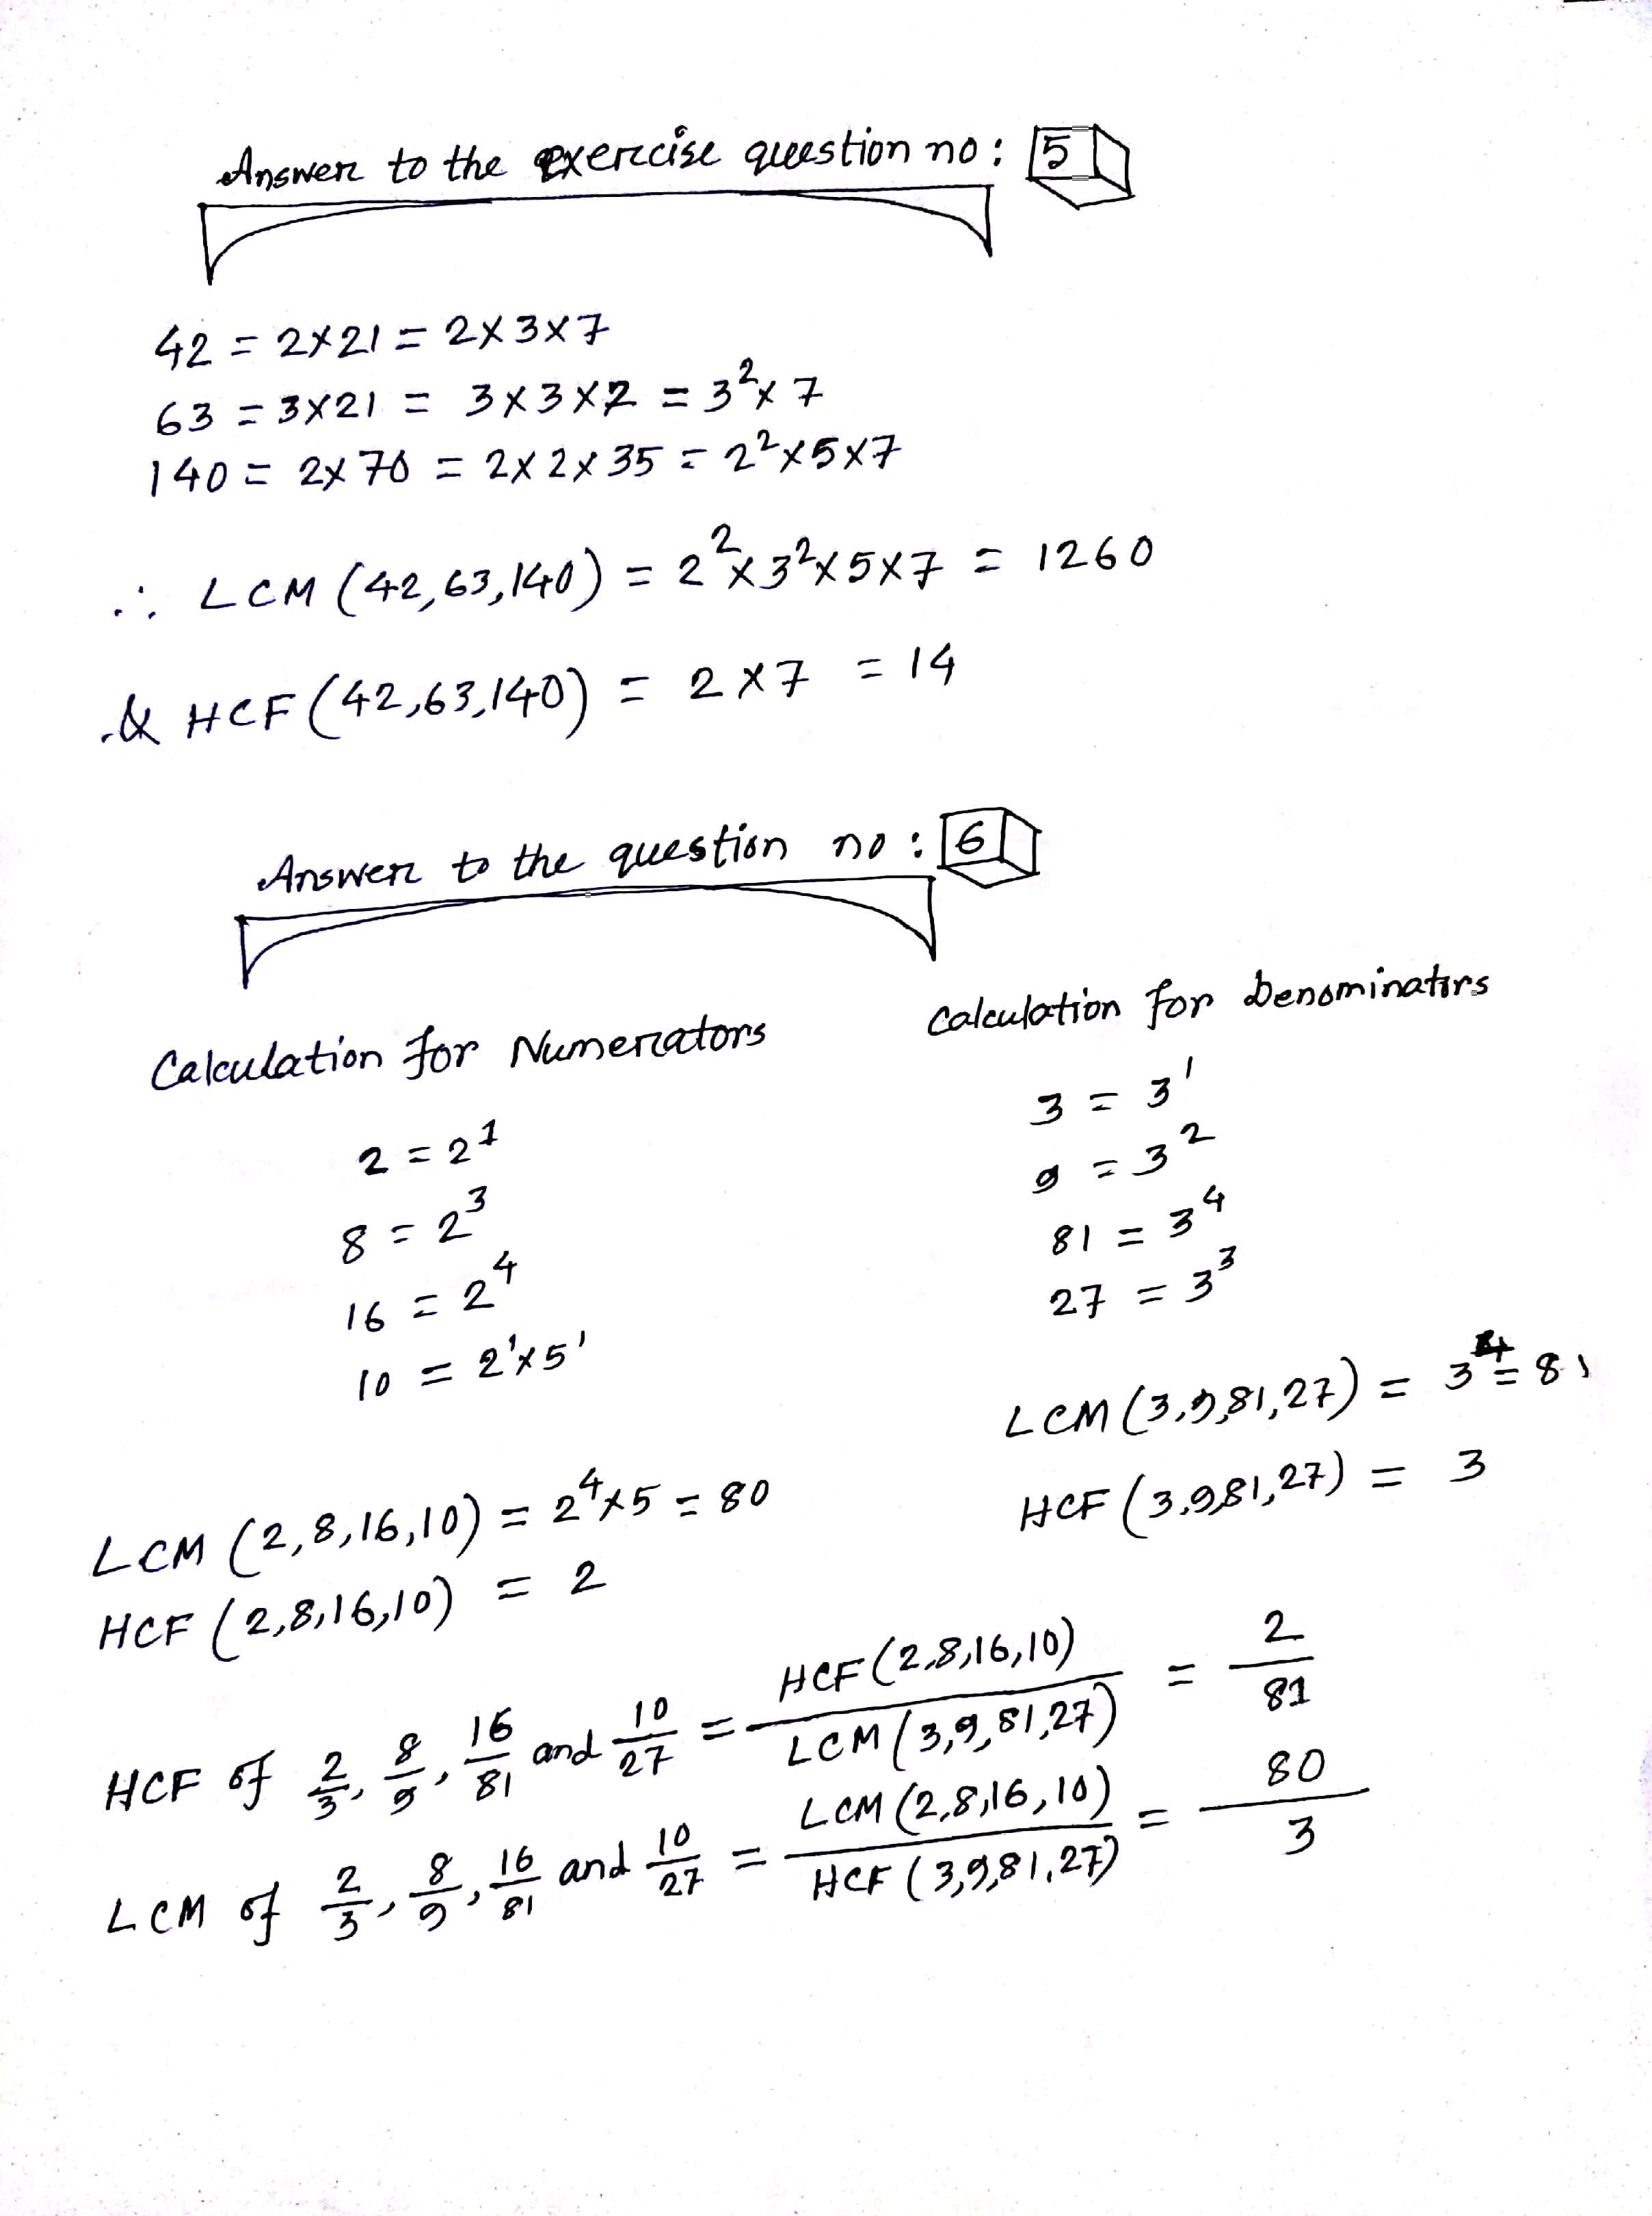 Answer to the exercise question no: 5
42 = 2×21 = 2×3×7
63 = 3×21 = 3×3×7 = 3²×7
140 = 2×70 = 2×2×35 = 2²×5×7
∴ LCM (42,63,140) = 2²×3²×5×7 = 1260
& HCF (42,63,140) = 2×7 = 14
Answer to the question no: 6
Calculation for Numerators
2 = 2¹
8 = 2³
16 = 2⁴
10 = 2¹×5¹
LCM (2,8,16,10) = 2⁴×5 = 80
HCF (2,8,16,10) = 2
Calculation for Denominators
3 = 3¹
9 = 3²
81 = 3⁴
27 = 3³
LCM (3,9,81,27) = 3⁴ = 81
HCF (3,9,81,27) = 3
HCF of 2/3, 8/9, 16/81 and 10/27 = HCF (2,8,16,10) / LCM (3,9,81,27) = 2/81
LCM of 2/3, 8/9, 16/81 and 10/27 = LCM (2,8,16,10) / HCF (3,9,81,27) = 80/3